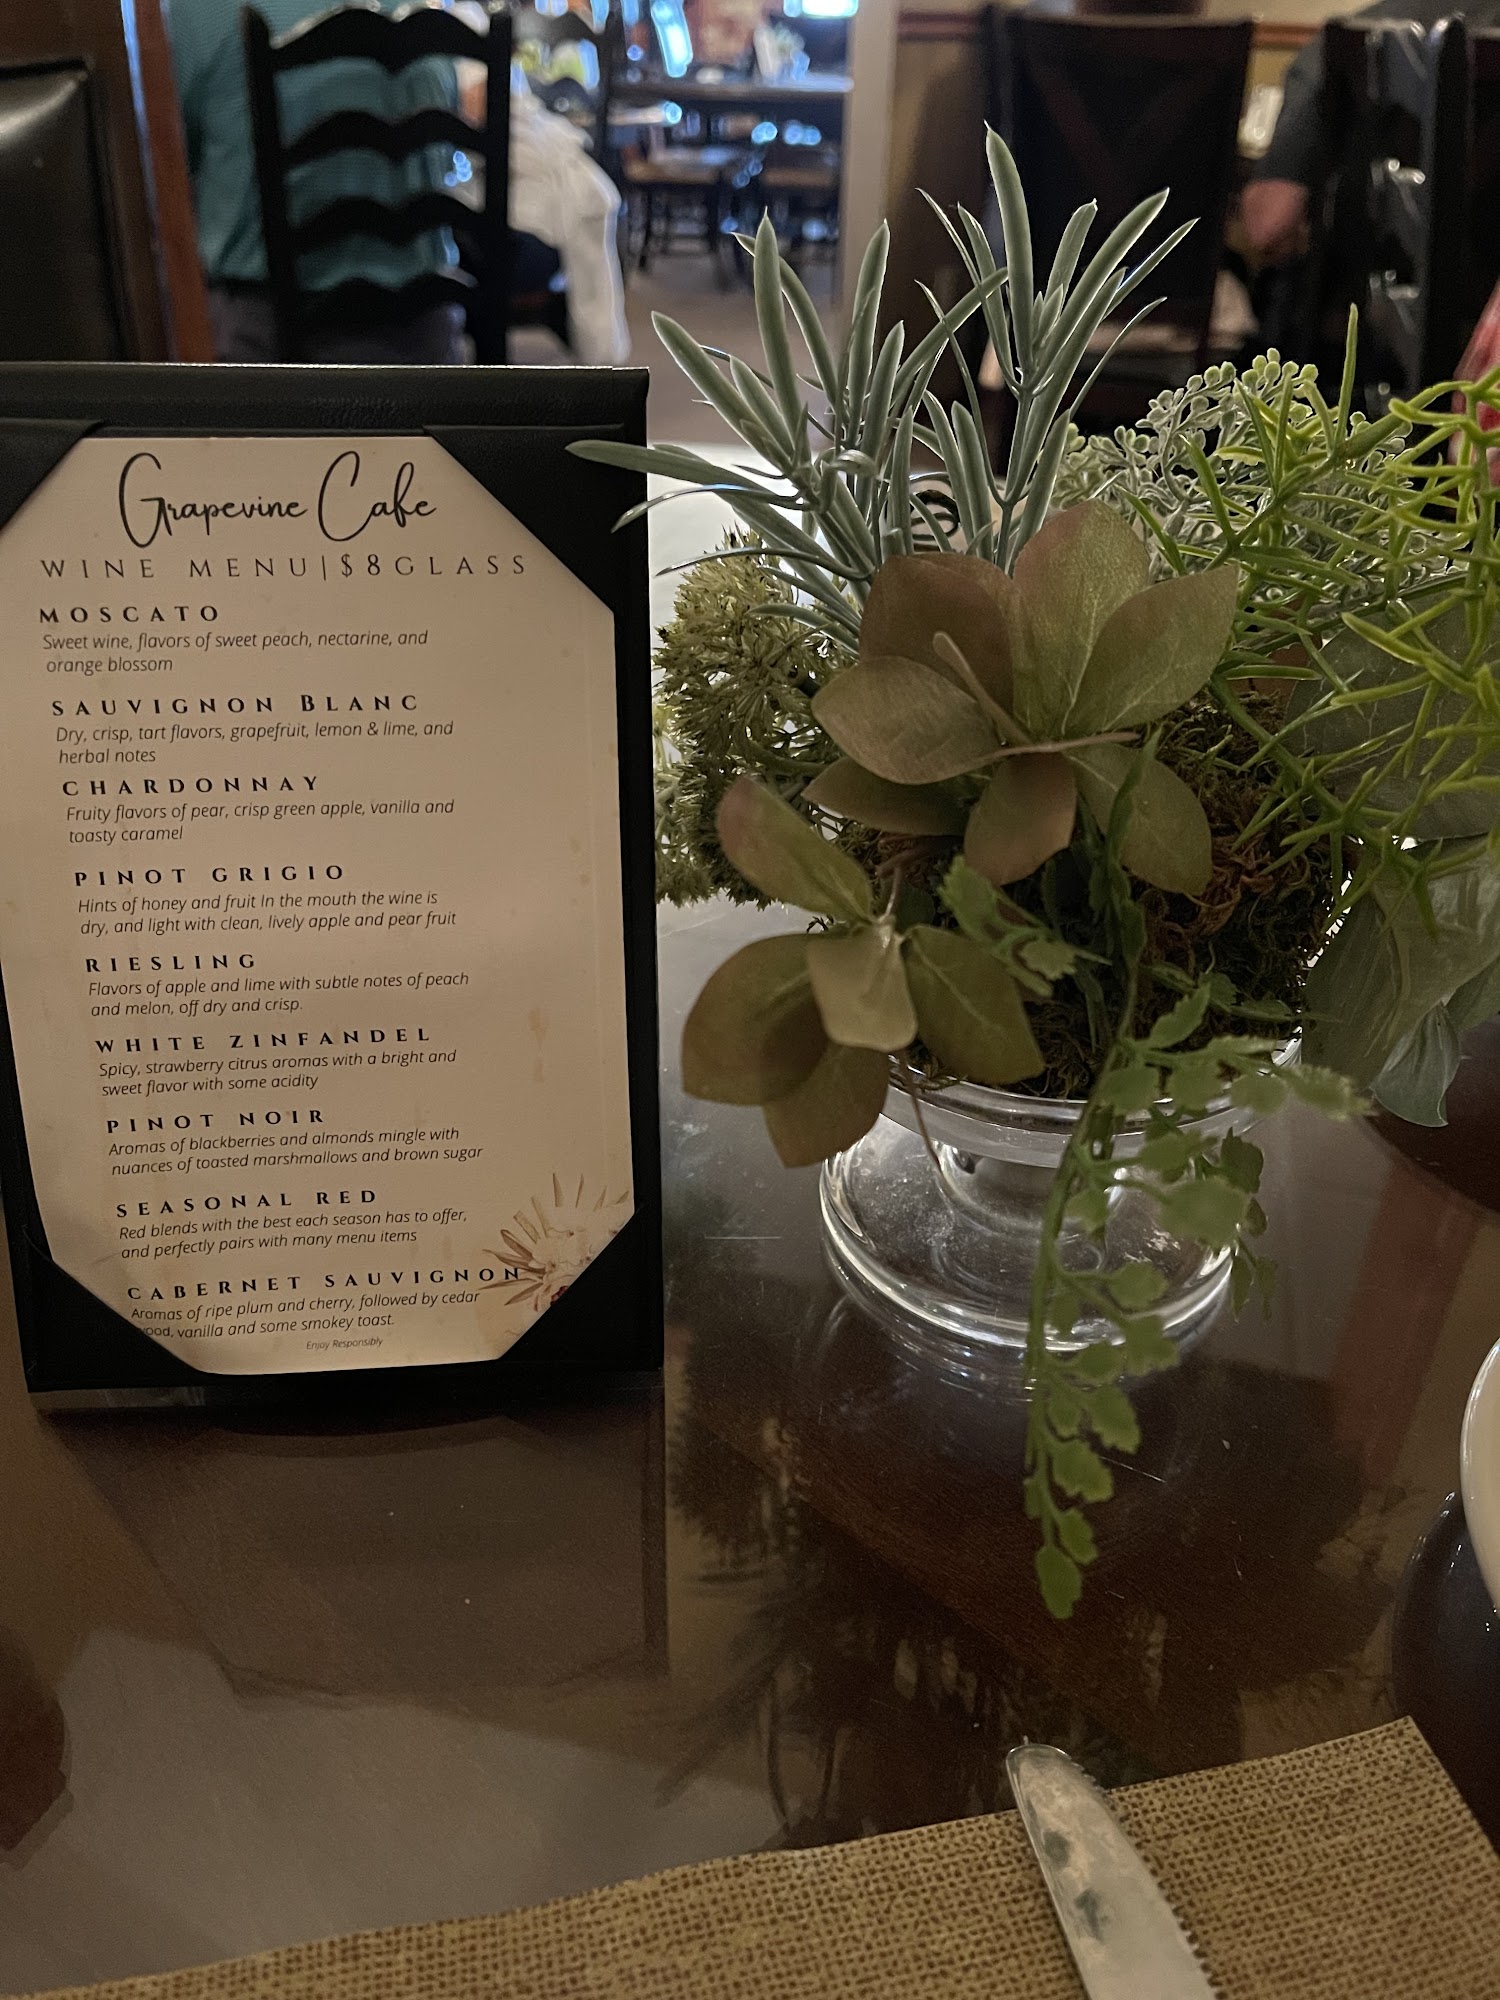 Grapevine Cafe
WINE MENU|$8GLASS
MOSCATO
Sweet wine, flavors of sweet peach, nectarine, and
orange blossom
SAUVIGNON BLANC
Dry, crisp, tart flavors, grapefruit, lemon & lime, and
herbal notes
CHARDONNAY
Fruity flavors of pear, crisp green apple, vanilla and
toasty caramel
PINOT GRIGIO
Hints of honey and fruit In the mouth the wine is
dry, and light with clean, lively apple and pear fruit
RIESLING
Flavors of apple and lime with subtle notes of peach
and melon, off dry and crisp.
WHITE ZINFANDEL
Spicy, strawberry citrus aromas with a bright and
sweet flavor with some acidity
PINOT NOIR
Aromas of blackberries and almonds mingle with
nuances of toasted marshmallows and brown sugar
SEASONAL RED
Red blends with the best each season has to offer,
and perfectly pairs with many menu items
CABERNET SAUVIGNON
Aromas of ripe plum and cherry, followed by cedar
wood, vanilla and some smokey toast.
Enjoy Responsibly